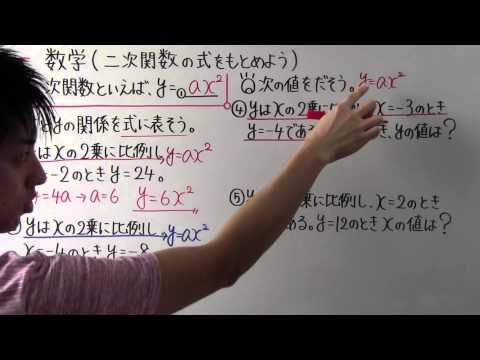 数学(二次関数の式をもとめよう)
次関数といえば、y=①ax²
yの関係を式に表そう。
はxの2乗に比例し、y=ax²
=-2のときy=24。
=4a→a=6 y=6x²
yはxの2乗に比例し、y=ax²
x=-4のときy=-8
次の値をだそう。y=ax²
④yはxの2乗に比例し x=-3のとき
y=-4である き、yの値は?
⑤y 乗に比例し、x=2のとき
ある。y=12のときxの値は?